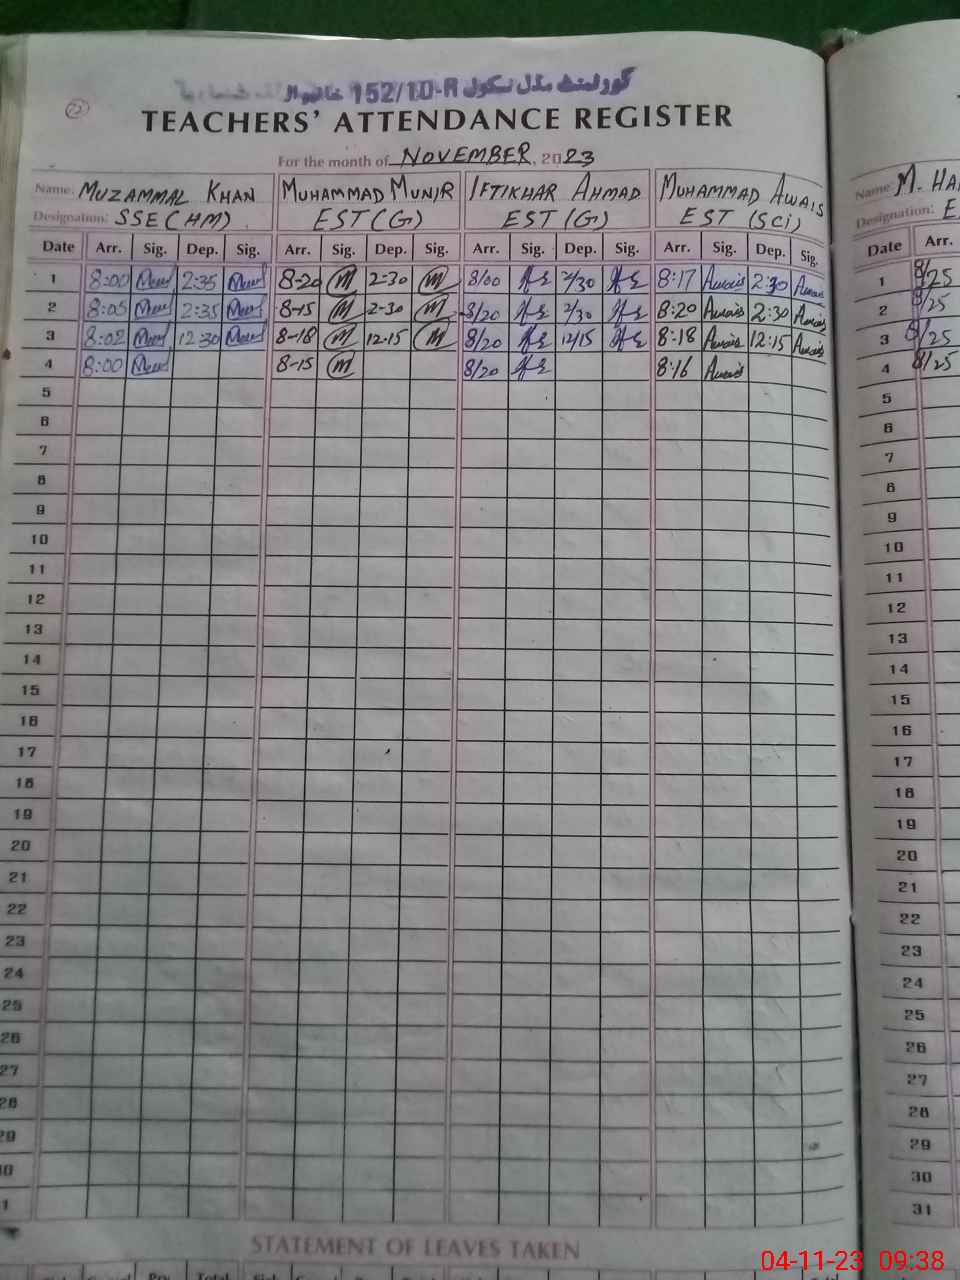 گورنمنٹ مڈل سکول 152/10-R خانیوال
TEACHERS' ATTENDANCE REGISTER
For the month of NOVEMBER, 2023
Name: MUZAMMAL KHAN MUHAMMAD MUNIR IFTIKHAR AHMAD MUHAMMAD AWAIS Name: M.
Designation: SSE (HM) EST (G) EST (G) EST (SCi) Designation:
Date Arr. Sig. Dep. Sig. Arr. Sig. Dep. Sig. Arr. Sig. Dep. Sig. Arr. Sig. Dep. Sig. Date Arr.
1 8:00 2:35 8-20 M 2-30 M 8/00 2/30 8:17 Awais 2:30 Awais 1 8/25
2 8:05 2:35 8-15 M 2-30 M 8/20 2/30 8:20 Awais 2:30 Awais 2 8/25
3 8:02 12:30 8-18 M 12-15 M 8/20 12/15 8:18 Awais 12:15 Awais 3 8/25
4 8:00 8-15 M 8/20 8:16 Awais 4 8/25
5 5
6 6
7 7
8 8
9 9
10 10
11 11
12 12
13 13
14 14
15 15
16 16
17 17
18 18
19 19
20 20
21 21
22 22
23 23
24 24
25 25
26 26
27 27
28 28
29 29
30
31
STATEMENT OF LEAVES TAKEN
04-11-23 09:38